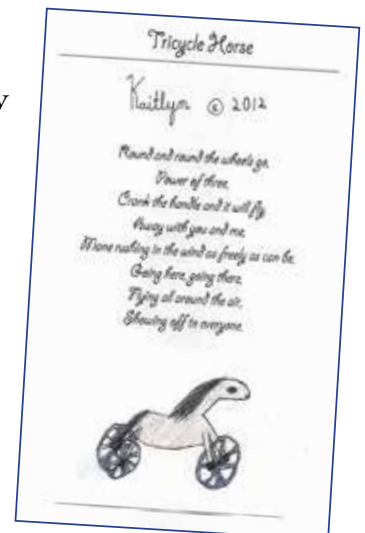 y
Tricycle Horse
Kaitlyn © 2012
Round and round the wheels go,
Power of three,
Crank the handle and it will fly
Away with you and me,
Mane rushing in the wind as freely as can be.
Going here, going there,
Flying all around the air,
Showing off to everyone.